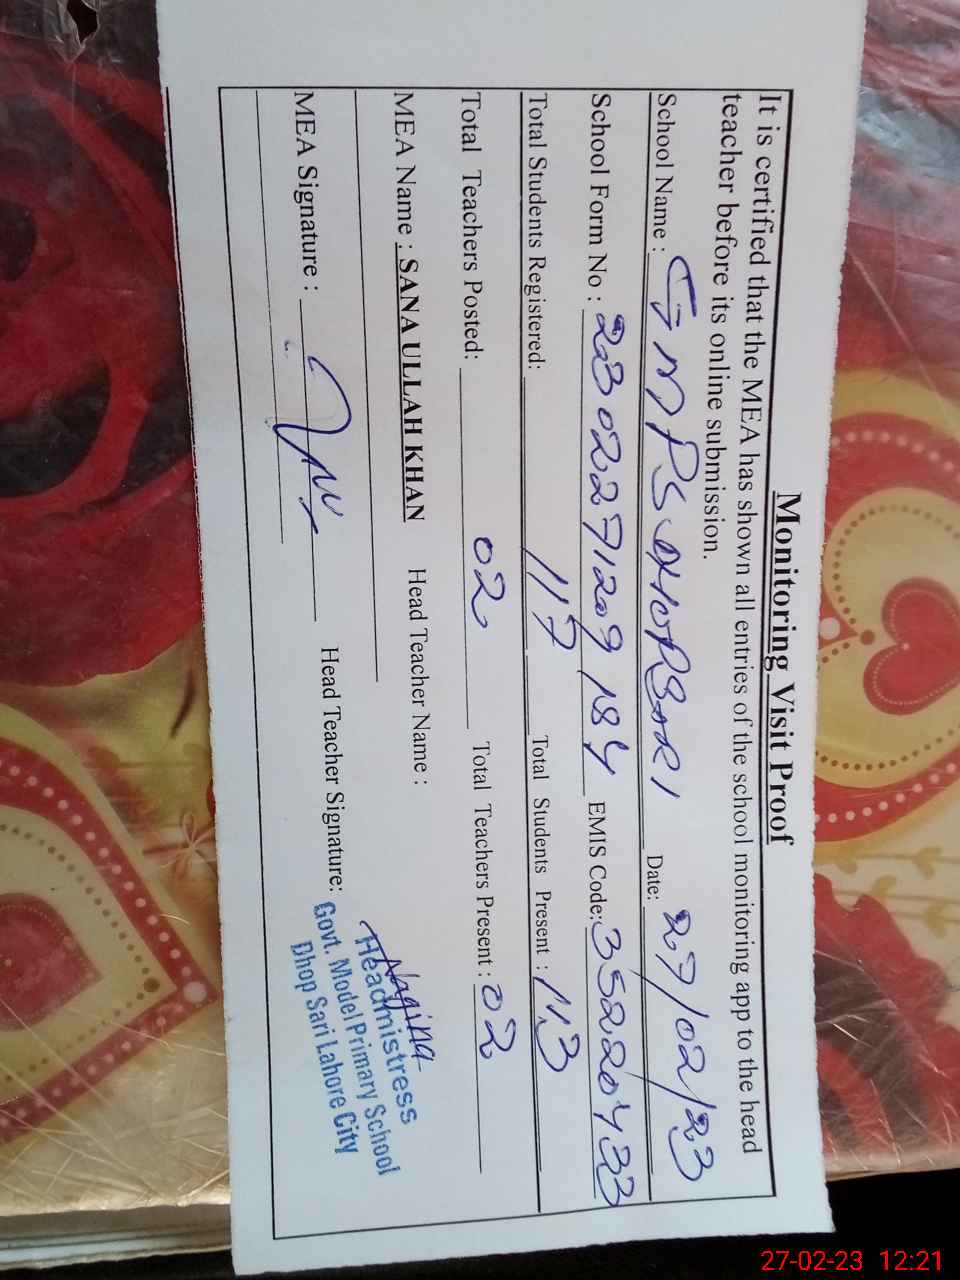 Monitoring Visit Proof
It is certified that the MEA has shown all entries of the school monitoring app to the head
teacher before its online submission.
School Name : GMPS Date: 27/02/23
School Form No : EMIS Code: 35220433
Total Students Registered: 117 Total Students Present : 113
Total Teachers Posted: 02 Total Teachers Present : 02
MEA Name : SANA ULLAH KHAN Head Teacher Name :
MEA Signature : Head Teacher Signature:
Nagina
Headmistress
Govt. Model Primary School
Dhop Sari Lahore City
27-02-23 12:21